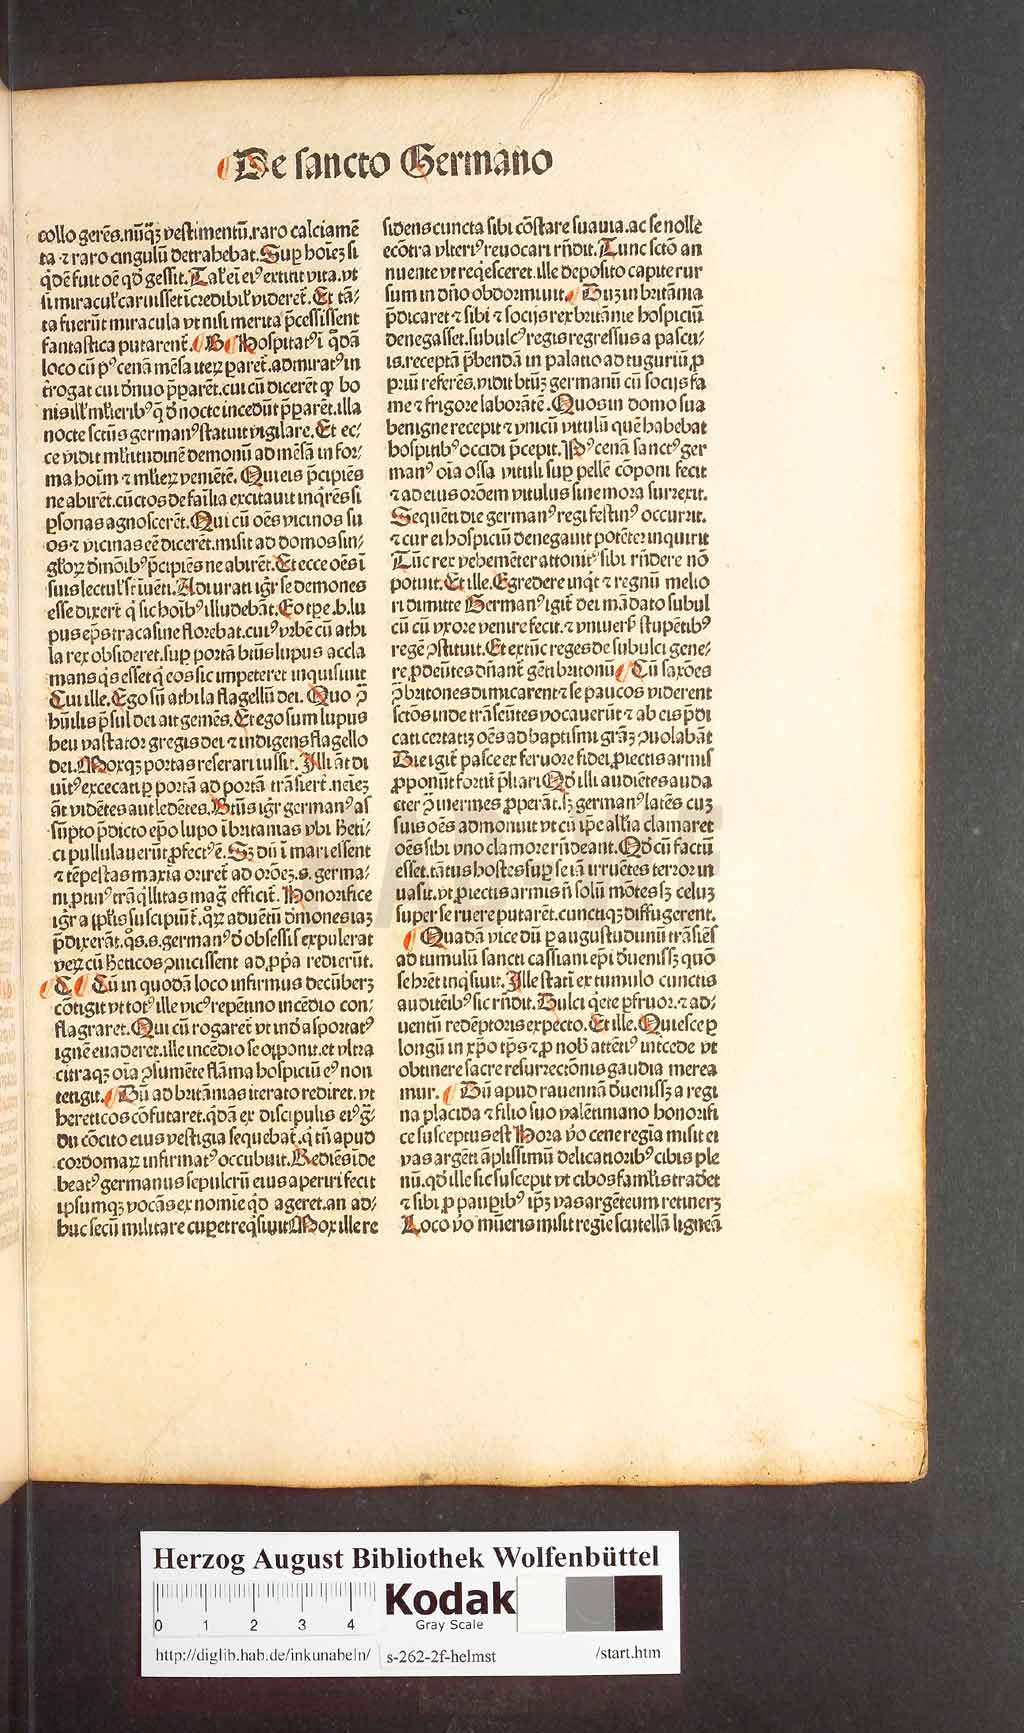 De sancto Germano
collo gerēs.nūq̄ꝫ vestimentū.raro calciamē
ta ⁊ raro cingulū detrahebat.Suꝑ hoīeꝫ si
q̇dē fuit oē qḋ gessit.Tal'ei eiꝰ extitit vita.vt
si miracul'caruisset īcredibil'videret̄.Et tā⸗
ta fuerūt miracula vt nisi merita p̄cessissent
fantastica putarent̄.B Hospitatꝰ ī q̇dā
loco cū pꝰ cenā mēsa iteꝝ ꝑaret̄.admiratꝰ in
t̄rogat cui ḋnuo p̄ꝑaret̄.cui cū dicerēt ꝙ bo
nis ill'ml'ieribꝰ q̇ ḋ nocte incedūt p̄ꝑaret̄.illa
nocte sctūs germanꝰ statuit vigilare.Et ec⸗
ce vidit ml'titudinē demonū ad mēsā in for⸗
ma hoīm ⁊ ml'ieꝝ veniētē.Qui eis p̄cipiēs
ne abirēt.cūctos de faīlia excitauit inq̇rēs si
ꝑsonas agnoscerēt.Qui cū oēs vicinos su
os ⁊ vicinas eē dicerēt.misit ad domos sin⸗
gl'oꝝ ḋmōibꝰ p̄cipiēs ne abirēt.Et ecce oēs ī
suis lectul' st̄ īuēti.Adiurati igr̄ se demones
esse dixert̄ q̇ sic hoibꝰ illudebāt.Eo tꝑe.b.lu
pus ep̄s tracasine florebat.cuiꝰ vrbē cū athi
la rex obsideret.suꝑ portā btūs lupus accla
mans q̇s esset q̇ eos sic impeteret inquisiuit
Cui ille.Ego sū athila flagellū dei.Quo ↄ̄
hūilis p̄sul dei ait gemēs.Et ego sum lupus
heu vastator gregis dei ⁊ indigens flagello
dei.Moxqꝫ portas reserari iussit.Illi āt di
uīt̄ꝰ excecati ꝑ portā ad portā trāsiert̄.neīeꝫ
āt vidētes aut ledētes.Btūs igr̄ germanꝰ as
sūpto p̄dicto ep̄o lupo ī britanias vbi heti⸗
ci pullulauerūt ꝓfectꝰ ē.Sꝫ dū ī mari essent
⁊ tēpestas maxīa oriret̄ ad orōeꝫ.s.germa⸗
ni ꝓtinꝰ trāq̇llitas mag̃ efficit̄.Honorifice
igr̄ a ppl'is suscipiūt̄.q̇ꝝ aduētū ḋmones iaꝫ
p̄dixerāt.q̇s.s.germanꝰ ḋ obsessis expulerat
veꝝ cū heticos ↄuicissent ad ꝓp̄a redierūt.
C Cū in quodā loco infirmus decūberꝫ
cōtigit vt totꝰ ille vicꝰ repētino incēdio con⸗
flagraret.Qui cū rogaret̄ vt inḋ asportatꝰ
ignē euaderet.ille incēdio se oꝑponit.et vltra
citraqꝫ oīa ↄsumēte flāma hospiciū eꝰ non
tetigit.Dū ad britānias iterato rediret.vt
hereticos cōfutaret.q̇dā ex discipulis eiꝰ g̃⸗
du cōcito eius vestigia sequebat̄.q̇ tn̄ apud
cordomaꝝ infirmatꝰ occubuit.Rediēs īde
beatꝰ germanus sepulcrū eius aperiri fecit
ipsumqꝫ vocās ex nomīe q̇ḋ ageret.an ad⸗
huc secū militare cuꝑet req̇siuit Mox ille re
sidens cuncta sibi cōstare suauia.ac se nolle
ecōtra vlteriꝰ reuocari rn̄dit.Tunc sctō an
nuente vt req̇esceret.ille deposito capite rur
sum in dn̄o obdormiuit.Duꝫ in britānia
p̄dicaret ⁊ sibi ⁊ socijs rex britānie hospiciū
denegasset.subulcꝰ regis regressus a pascu⸗
is.receptā p̄bendā in palatio ad tuguriū.ꝓ
priū referēs.vidit btūꝫ germanū cū socijs fa
me ⁊ frigore laborātē.Quos in domo sua
benigne recepit ⁊ vnicū vitulū quē habebat
hospitibꝰ occidi p̄cepit.Pꝰ cenā sanctꝰ ger
manꝰ oīa ossa vituli suꝑ pellē cōponi fecit
⁊ ad eius orōem vitulus sine mora surrexit.
Sequēti die germanꝰ regi festinꝰ occurrit.
⁊ cur ei hospiciū denegauit potēter inquirit
Tūc rex vehemēter attonitꝰ sibi rn̄dere nō
potuit.Et ille.Egredere inq̇t ⁊ regnū melio
ri dimitte Germanꝰ igit̄ dei mādato subul
cū cū vxore venire fecit.⁊ vniuersꝰ stupētibꝰ
regē ↄstituit.Et extūc reges de subulci gene⸗
re ꝓdeūtes dn̄ant̄ gēti britonū Cū saxōes
ↄ̄ britones dimicarent ⁊ se paucos viderent
sctōs inde trāseūtes vocauerūt ⁊ ab eis p̄di
cati certatiꝫ oēs ad baptismi gr̄aꝫ ↄuolabāt
Die igit̄ pasce ex feruore fidei.ꝓiectis armis
ꝓponūt fortit̄ p̄liari Qḋ illi audiētes auda
cter ↄ̄ inermes ꝓperāt.sꝫ germanꝰ latēs cuꝫ
suis oēs admonuit vt cū ip̄e all'ia clamaret
oēs sibi vno clamore rn̄deant.Qḋ cū factū
esset.tātus hostes suꝑ se iā irruētes terror in
uasit.vt ꝓiectis armis n̄ solū mōtes sꝫ celuꝫ
super se ruere putarēt.cunctiqꝫ diffugerent.
Quadā vice dū ꝑ augustudunū trāsiēs
ad tumulū sancti cassiani epī ḋuenissꝫ quō
se hr̄et inq̇siuit.Ille statī ex tumulo cunctis
audiētibꝰ sic rn̄dit.Dulci q̇ete ꝑfruor.⁊ ad⸗
uentū redēptoris expecto.Et ille.Quiesce ꝑ
longū in xp̄o ip̄s ⁊ ꝓ nob' attētiꝰ intcede vt
obtinere sacre resurrectōnis gaudia merea
mur.Dū apud rauennā ḋuenissꝫ a regi
na placida ⁊ filio suo valētiniano honorifi
ce susceptus est Hora ṽo cene regīa misit ei
vas argēti āplissimū delicatioribꝰ cibis ple
nū.qḋ ille sic suscepit vt cibos faml'is tradēt
⁊ sibi ꝓ pauꝑibꝰ ip̄ꝫ vas argēteum retinerꝫ
Loco ṽo mūeris misit regīe scutellā ligneā
Herzog August Bibliothek Wolfenbüttel
0 1 2 3 4
Kodak
Gray Scale
http://diglib.hab.de/inkunabeln/ s-262-2f-helmst /start.htm
HAB WF